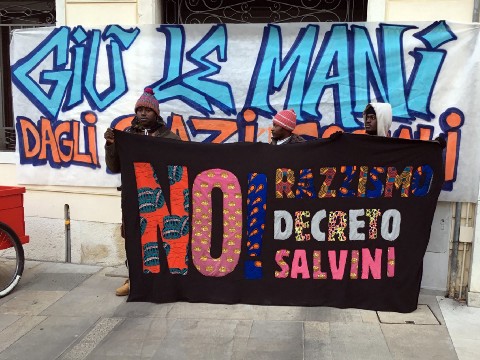 GIÙ LE MANI
DAGLI
NO!
RAZZISMO
DECRETO
SALVINI